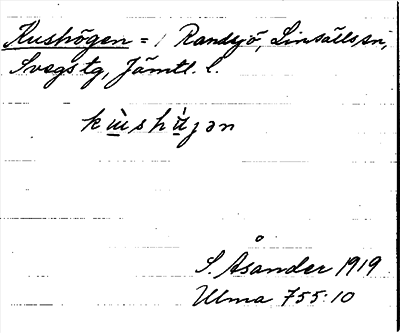 Kushögen = / Randsjö, Linsälls sn,
Svegs tg, Jämtl. l.
kùshògən
S. Åsander 1919
Ulma 755:10